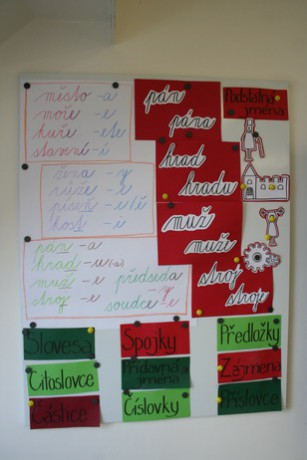 město -a
moře -e
kuře -ete
stavení -í
žena -y
růže -e
píseň -e/ě
kost -i
pán -a
hrad -u(-a)
muž -e
stroj -e
předseda -y
soudce -e
pán
pána
hrad
hradu
muž
muže
stroj
stroje
Podstatná jména
Slovesa
Citoslovce
Částice
Spojky
Přídavná jména
Číslovky
Předložky
Zájmena
Příslovce